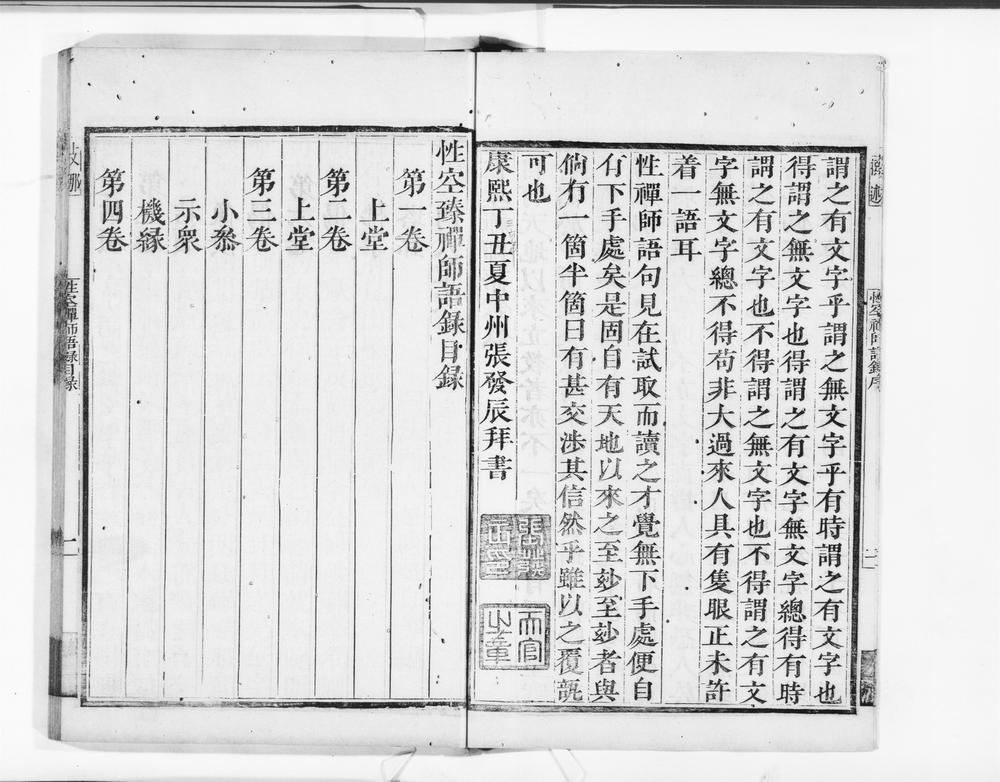 謂之有文字乎謂之無文字乎有時謂之有文字也
得謂之無文字也得謂之有文字無文字總得有時
謂之有文字也不得謂之無文字也不得謂之有文
字無文字總不得苟非大過來人具有隻眼正未許
着一語耳
性禪師語句見在試取而讀之才覺無下手處便自
有下手處矣是固自有天地以來之至玅至玅者與
倘有一箇半箇曰有甚交涉其信然乎雖以之覆瓿
可也
康熙丁丑夏中州張發辰拜書
性空臻禪師語錄目録
第一卷
上堂
第二卷
上堂
第三卷
小叅
示衆
機緣
第四卷
性空禪師語録目録
一